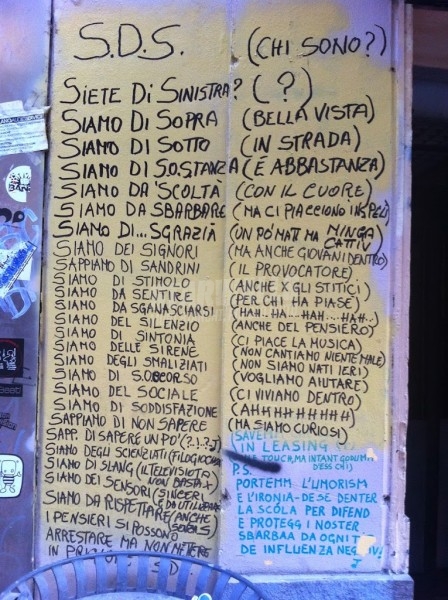 S.D.S. (CHI SONO?)
SIETE Di SINISTRA? (?)
SIAMO DI SOPRA (BELLA VISTA)
SIAMO DI SOTTO (IN STRADA)
SIAMO DI S.O.STANZA (É ABBASTANZA)
SIAMO DA 'SCOLTÀ (CON IL CUORE)
SIAMO DA SBARBARE (MA CI PIACCIONO
SIAMO DI...SGRAZIÀ (UN PÓ MATI MA MINGA CATTIV)
SIAMO DEI SIGNORI (MA ANCHE GIOVANI DENTRO)
SAPPIAMO DI SANDRINI (IL PROVOCATORE)
SIAMO DI STIMOLO (ANCHE X GLI STITICI)
SIAMO DA SENTIRE (PER CHI HA PIASE)
SIAMO DA SGANASCIARSI (HAH..HA....HAH....HA..)
SIAMO DEL SILENZIO (ANCHE DEL PENSIERO)
SIAMO DI SINTONIA (CI PIACE LA MUSICA)
SIAMO DELLE SIRENE (NON CANTIAMO NIENTE MALE)
SIAMO DEGLI SMALIZIATI (NON SIAMO NATI IERI)
SIAMO DI S.O.CCORSO (VOGLIAMO AIUTARE)
SIAMO DEL SOCIALE (CI VIVIAMO DENTRO)
SIAMO DI SODDISFAZIONE (AHHHHHHHH)
SAPPIAMO DI NON SAPERE (MA SIAMO CURIOSI)
SAPP. DI SAPERE UN PO'
SIAMO DEGLI SCIENZIATI
SIAMO DI SLANG
NON BASTA X
SIAMO DEI SENSORI (SINCERI
SIAMO DA RISPETTARE (ANCHE
I PENSIERI SI POSSONO
ARRESTARE MA NON METTERE
IN
IN LEASING
TOUCH, MA INTANT
P.S.
PORTEMM L'UMORISM
E L'IRONIA - DESEDENTER
LA SCOLA PER DIFEND
E PROTEGG I NOSTER
SBARBAA DA OGNI
DE INFLUENZA